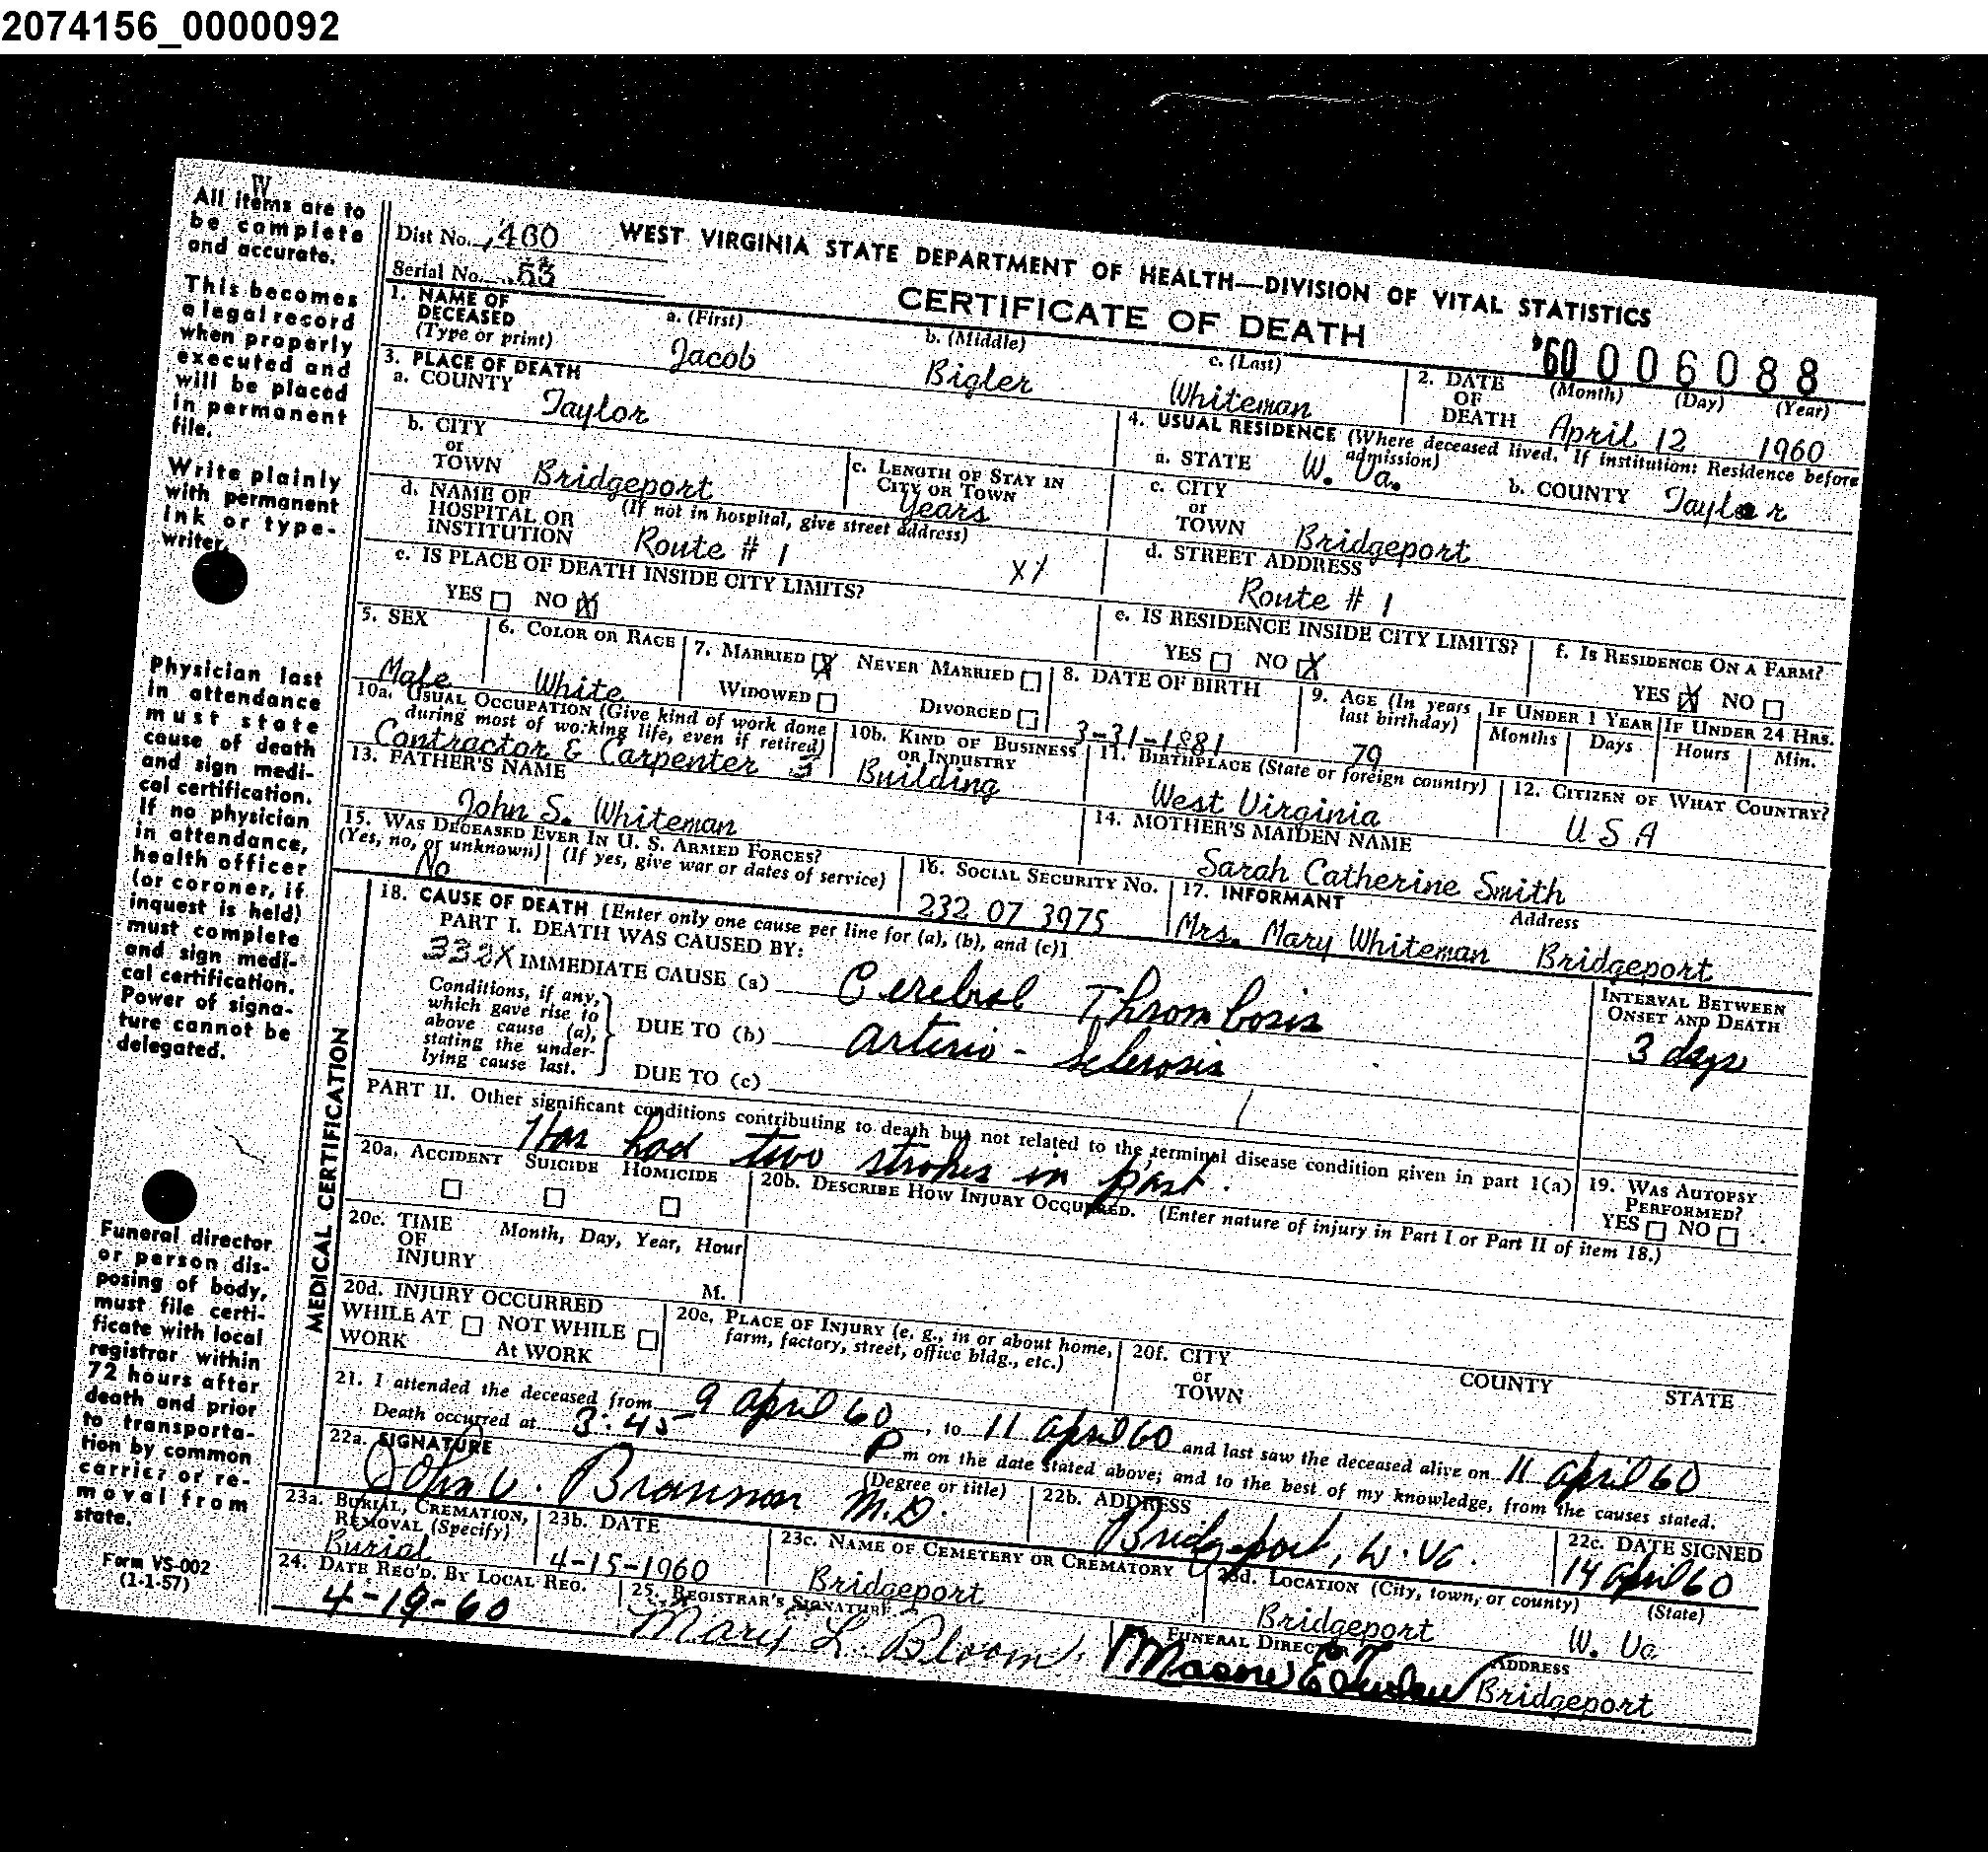 2074156_0000092
W
All items are to
be complete
and accurate.
This becomes
a legal record
when properly
executed and
will be placed
in permanent
file.
Write plainly
with permanent
ink or type-
writer.
Physician last
in attendance
must state
cause of death
and sign medi-
cal certification.
If no physician
in attendance,
health officer
(or coroner, if
inquest is held)
must complete
and sign medi-
cal certification.
Power of signa-
ture cannot be
delegated.
Funeral director
or person dis-
posing of body,
must file certi-
ficate with local
registrar within
72 hours after
death and prior
to transporta-
tion by common
carrier or re-
moval from
state.
Form VS-002
(1-1-57)
Dist No. 460
Serial No. 53
WEST VIRGINIA STATE DEPARTMENT OF HEALTH—DIVISION OF VITAL STATISTICS
CERTIFICATE OF DEATH
'60 006088
1. NAME OF DECEASED (Type or print) a. (First) Jacob b. (Middle) Bigler c. (Last) Whiteman
2. DATE OF DEATH (Month) (Day) (Year) April 12 1960
3. PLACE OF DEATH
a. COUNTY Taylor
b. CITY or TOWN Bridgeport
c. LENGTH OF STAY IN CITY OR TOWN Years
d. NAME OF HOSPITAL OR INSTITUTION (If not in hospital, give street address) Route # 1
X1
e. IS PLACE OF DEATH INSIDE CITY LIMITS?
YES NO X
4. USUAL RESIDENCE (Where deceased lived. If institution: Residence before admission)
a. STATE W. Va. b. COUNTY Taylor
c. CITY or TOWN Bridgeport
d. STREET ADDRESS Route # 1
e. IS RESIDENCE INSIDE CITY LIMITS?
YES NO X
f. IS RESIDENCE ON A FARM?
YES X NO
5. SEX Male
6. COLOR OR RACE White
7. MARRIED X NEVER MARRIED
WIDOWED DIVORCED
8. DATE OF BIRTH 3-31-1881
9. AGE (In years last birthday) 79
IF UNDER 1 YEAR Months Days
IF UNDER 24 HRS. Hours Min.
10a. USUAL OCCUPATION (Give kind of work done during most of working life, even if retired) Contractor & Carpenter 3
10b. KIND OF BUSINESS OR INDUSTRY Building
11. BIRTHPLACE (State or foreign country) West Virginia
12. CITIZEN OF WHAT COUNTRY? U S A
13. FATHER'S NAME John S. Whiteman
14. MOTHER'S MAIDEN NAME Sarah Catherine Smith
15. WAS DECEASED EVER IN U. S. ARMED FORCES?
(Yes, no, or unknown) (If yes, give war or dates of service)
No
16. SOCIAL SECURITY No. 232 07 3975
17. INFORMANT Address
Mrs. Mary Whiteman Bridgeport
MEDICAL CERTIFICATION
18. CAUSE OF DEATH [Enter only one cause per line for (a), (b), and (c)]
PART I. DEATH WAS CAUSED BY:
332X IMMEDIATE CAUSE (a) Cerebral Thrombosis
INTERVAL BETWEEN ONSET AND DEATH
3 days
Conditions, if any, which gave rise to above cause (a), stating the under-lying cause last.
DUE TO (b) Arterio-Sclerosis
DUE TO (c)
PART II. Other significant conditions contributing to death but not related to the terminal disease condition given in part 1(a)
Has had two strokes in past.
19. WAS AUTOPSY PERFORMED?
YES NO
20a. ACCIDENT SUICIDE HOMICIDE
20b. DESCRIBE HOW INJURY OCCURRED. (Enter nature of injury in Part I or Part II of item 18.)
20c. TIME OF INJURY Month, Day, Year, Hour
M.
20d. INJURY OCCURRED
WHILE AT WORK NOT WHILE AT WORK
20e. PLACE OF INJURY (e. g., in or about home, farm, factory, street, office bldg., etc.)
20f. CITY or TOWN COUNTY STATE
21. I attended the deceased from 9 April 60, to 11 April 60 and last saw the deceased alive on 11 April 60
Death occurred at 3:45 P m on the date stated above; and to the best of my knowledge, from the causes stated.
22a. SIGNATURE (Degree or title)
John V. Brannon M.D.
22b. ADDRESS Bridgeport, W. Va.
22c. DATE SIGNED 14 April 60
23a. BURIAL, CREMATION, REMOVAL (Specify) Burial
23b. DATE 4-15-1960
23c. NAME OF CEMETERY OR CREMATORY Bridgeport
23d. LOCATION (City, town, or county) (State)
Bridgeport W. Va
24. DATE REC'D. BY LOCAL REG. 4-19-60
25. REGISTRAR'S SIGNATURE Mary L. Bloom
FUNERAL DIRECTOR ADDRESS
Bridgeport